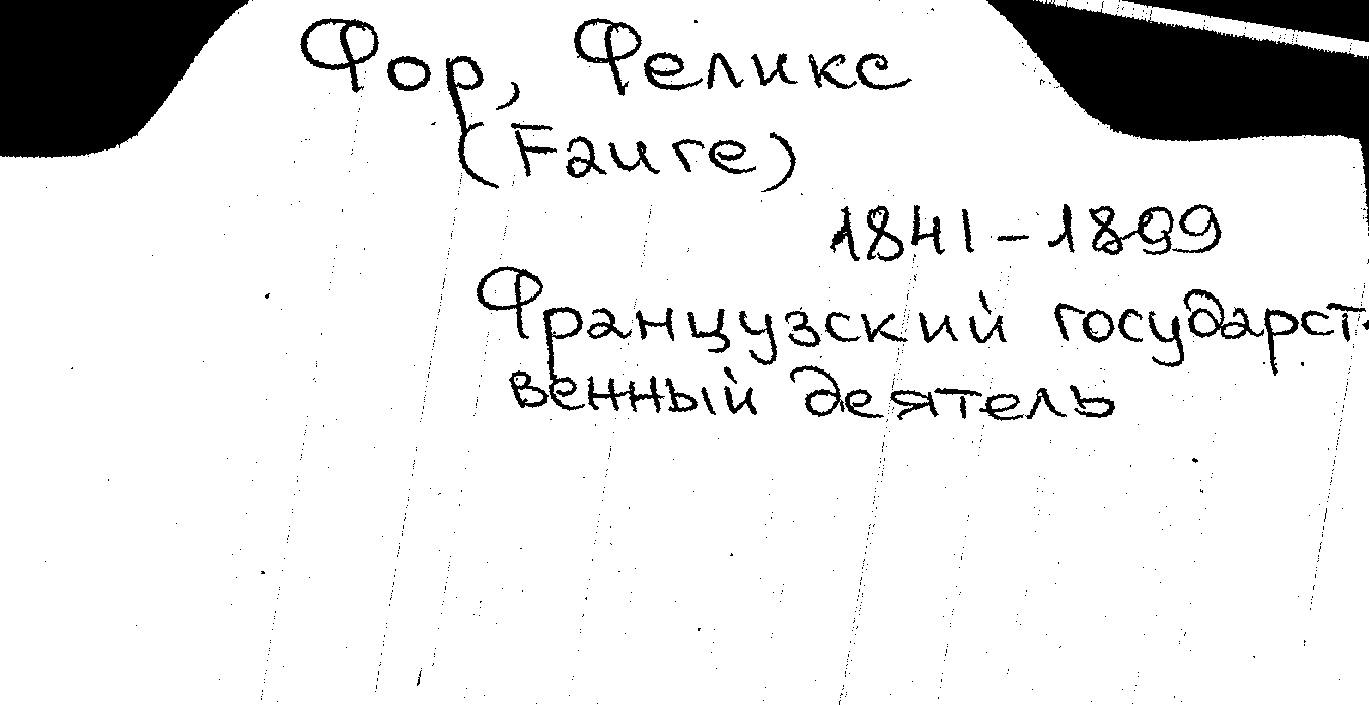 Фор, Феликс
(Faure)
1841-1899
Французский государст-
венный деятель